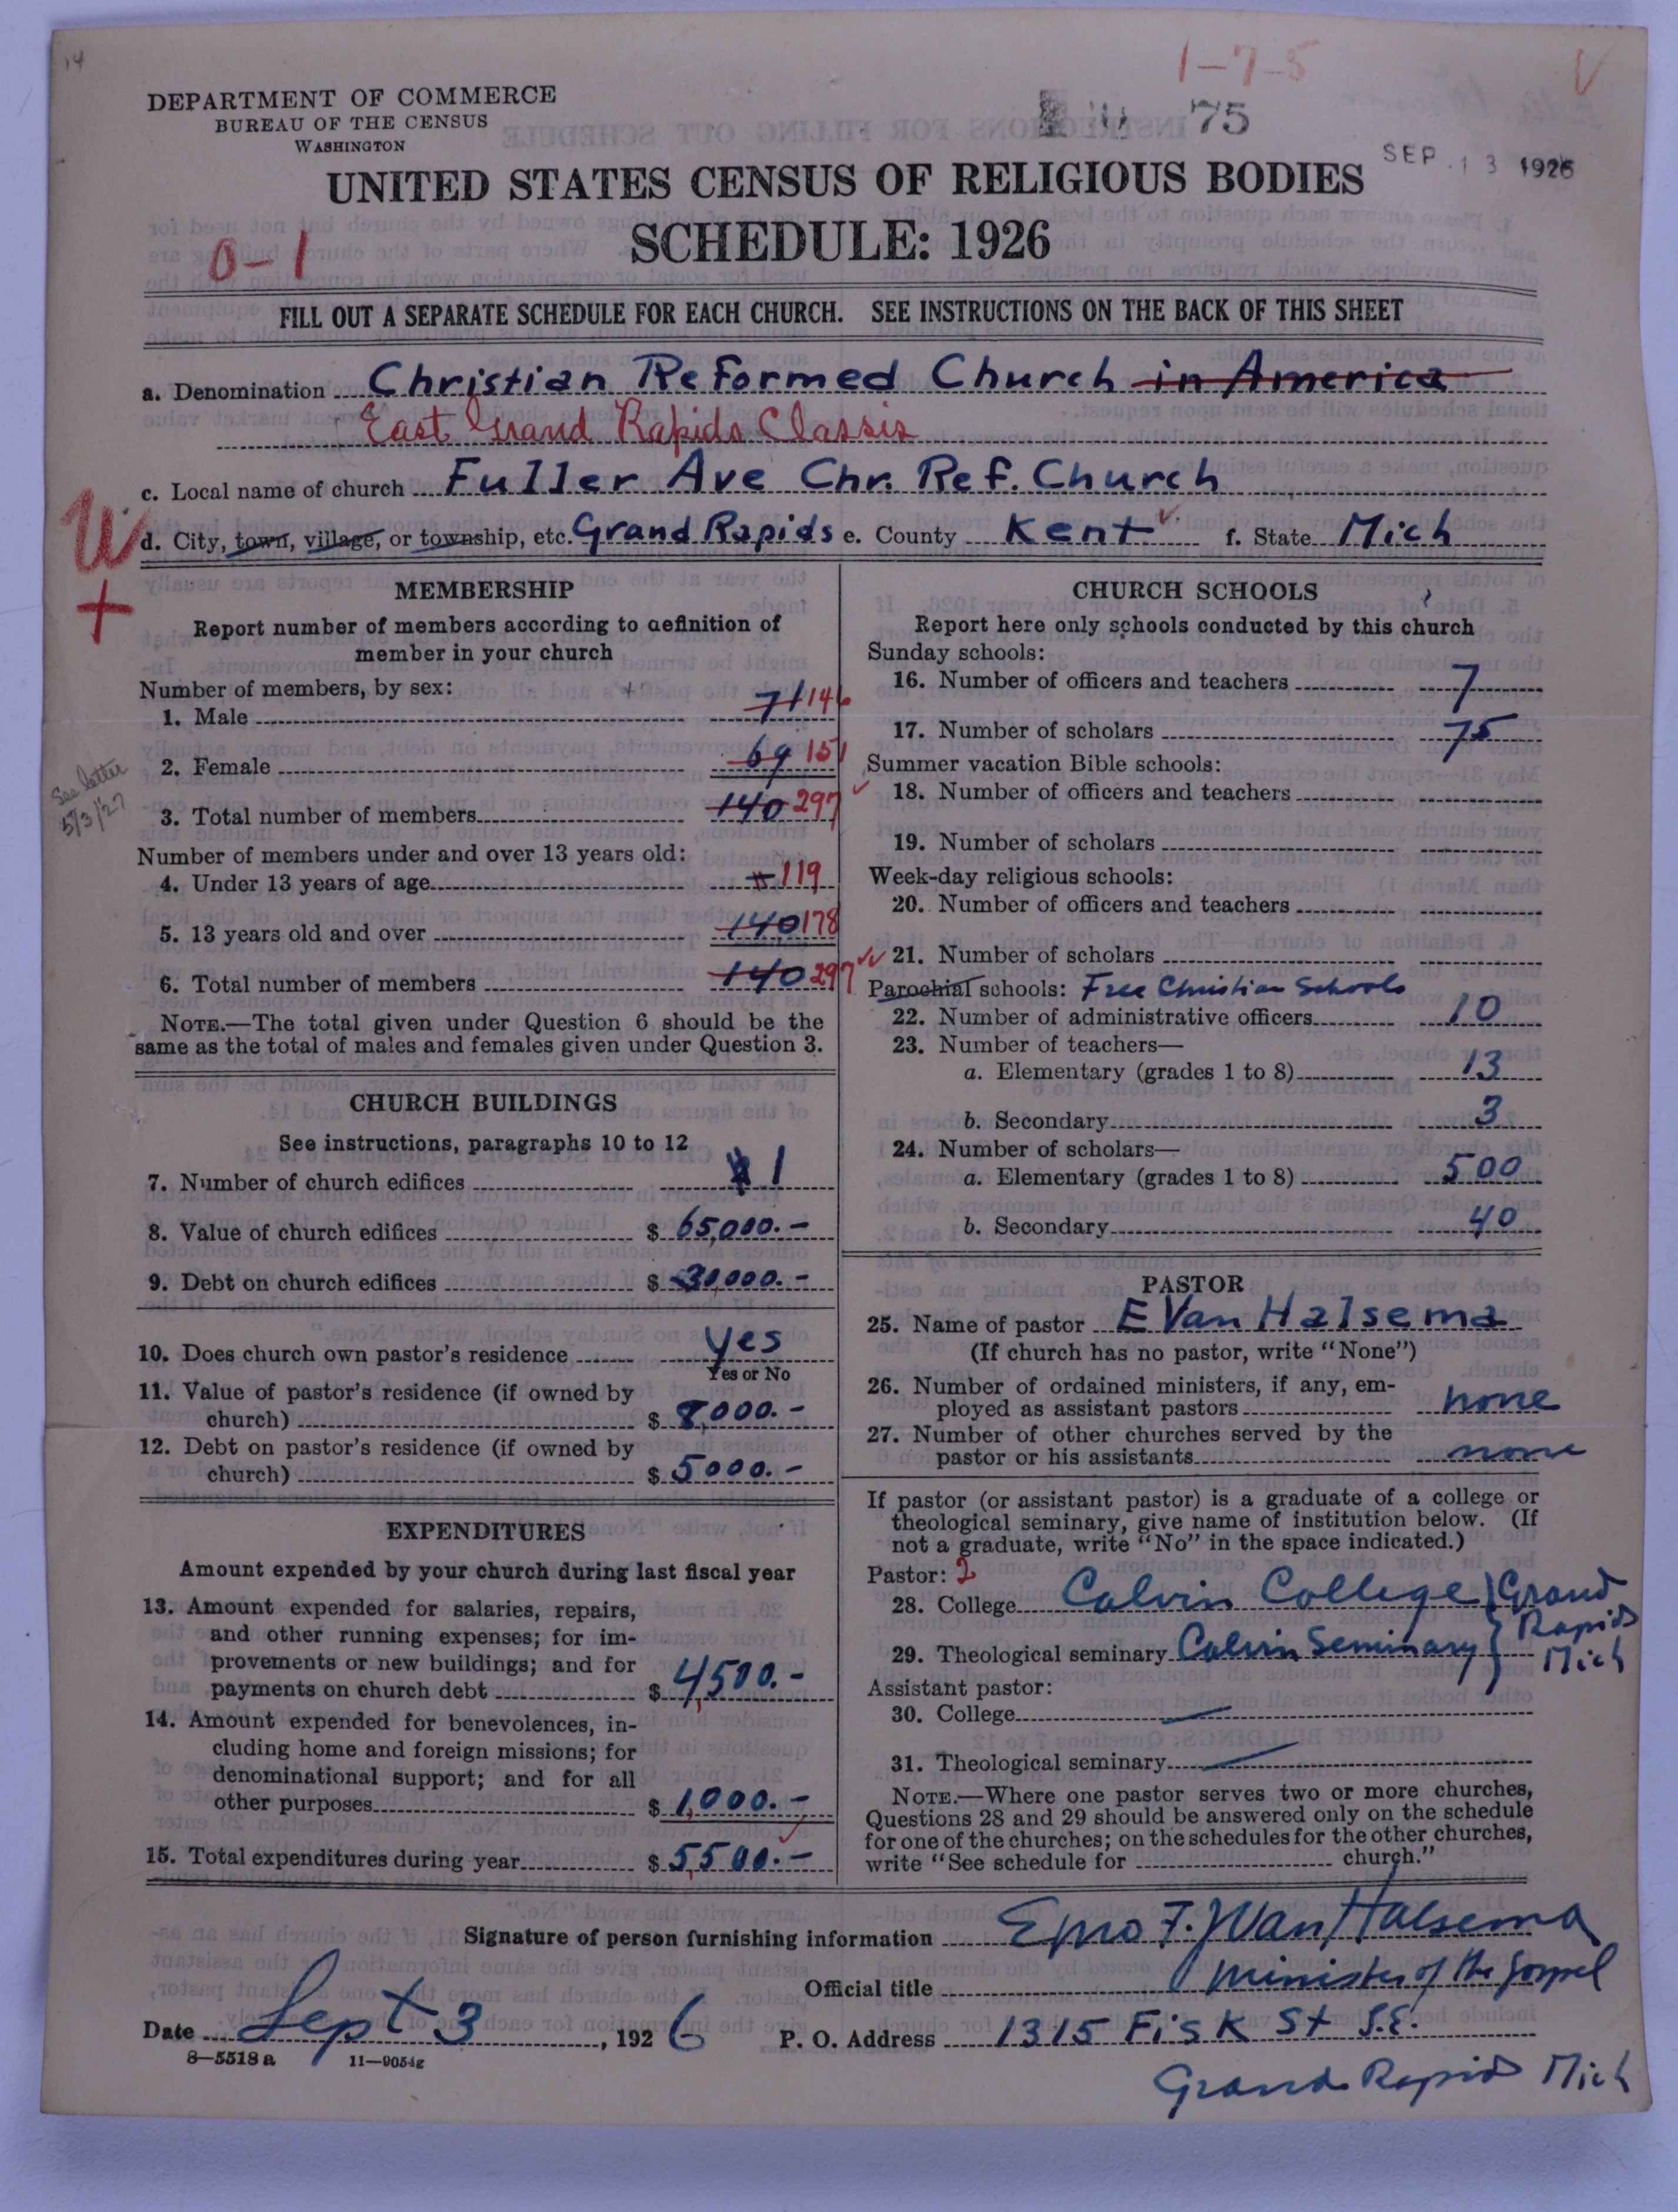 14
1-7-5
V
DEPARTMENT OF COMMERCE
BUREAU OF THE CENSUS
WASHINGTON
75
SEP. 13 1926
UNITED STATES CENSUS OF RELIGIOUS BODIES
SCHEDULE: 1926
0-1
FILL OUT A SEPARATE SCHEDULE FOR EACH CHURCH. SEE INSTRUCTIONS ON THE BACK OF THIS SHEET
a. Denomination Christian Reformed Church in America
East Grand Rapids Classis
c. Local name of church Fuller Ave Chr. Ref. Church
W
+
d. City, town, village, or township, etc. Grand Rapids e. County Kent f. State Mich
MEMBERSHIP
Report number of members according to definition of
member in your church
Number of members, by sex:
1. Male 71 146
2. Female 69 151
See letter
5/3/27
3. Total number of members 140 297
Number of members under and over 13 years old:
4. Under 13 years of age 119
5. 13 years old and over 140 178
6. Total number of members 140 297
NOTE.—The total given under Question 6 should be the
same as the total of males and females given under Question 3.
CHURCH BUILDINGS
See instructions, paragraphs 10 to 12
7. Number of church edifices 1
8. Value of church edifices $ 65,000.-
9. Debt on church edifices $ 30,000.-
10. Does church own pastor's residence yes
Yes or No
11. Value of pastor's residence (if owned by
church) $ 8,000.-
12. Debt on pastor's residence (if owned by
church) $ 5000.-
EXPENDITURES
Amount expended by your church during last fiscal year
13. Amount expended for salaries, repairs,
and other running expenses; for im-
provements or new buildings; and for
payments on church debt $ 4,500.-
14. Amount expended for benevolences, in-
cluding home and foreign missions; for
denominational support; and for all
other purposes $ 1,000.-
15. Total expenditures during year $ 5,500.-
CHURCH SCHOOLS
Report here only schools conducted by this church
Sunday schools:
16. Number of officers and teachers 7
17. Number of scholars 75
Summer vacation Bible schools:
18. Number of officers and teachers
19. Number of scholars
Week-day religious schools:
20. Number of officers and teachers
21. Number of scholars
Parochial schools: Free Christian Schools
22. Number of administrative officers 10
23. Number of teachers—
a. Elementary (grades 1 to 8) 13
b. Secondary 3
24. Number of scholars—
a. Elementary (grades 1 to 8) 500
b. Secondary 40
PASTOR
25. Name of pastor E Van Halsema
(If church has no pastor, write "None")
26. Number of ordained ministers, if any, em-
ployed as assistant pastors none
27. Number of other churches served by the
pastor or his assistants none
If pastor (or assistant pastor) is a graduate of a college or
theological seminary, give name of institution below. (If
not a graduate, write "No" in the space indicated.)
Pastor: 2
28. College Calvin College } Grand
Rapids
29. Theological seminary Calvin Seminary } Mich
Assistant pastor:
30. College —
31. Theological seminary —
NOTE.—Where one pastor serves two or more churches,
Questions 28 and 29 should be answered only on the schedule
for one of the churches; on the schedules for the other churches,
write "See schedule for church."
Signature of person furnishing information Emo F. J. Van Halsema
Official title Minister of the Gospel
Date Sept 3, 1926 P. O. Address 1315 Fisk St S.E.
8—5518 a 11—9054g
Grand Rapids Mich